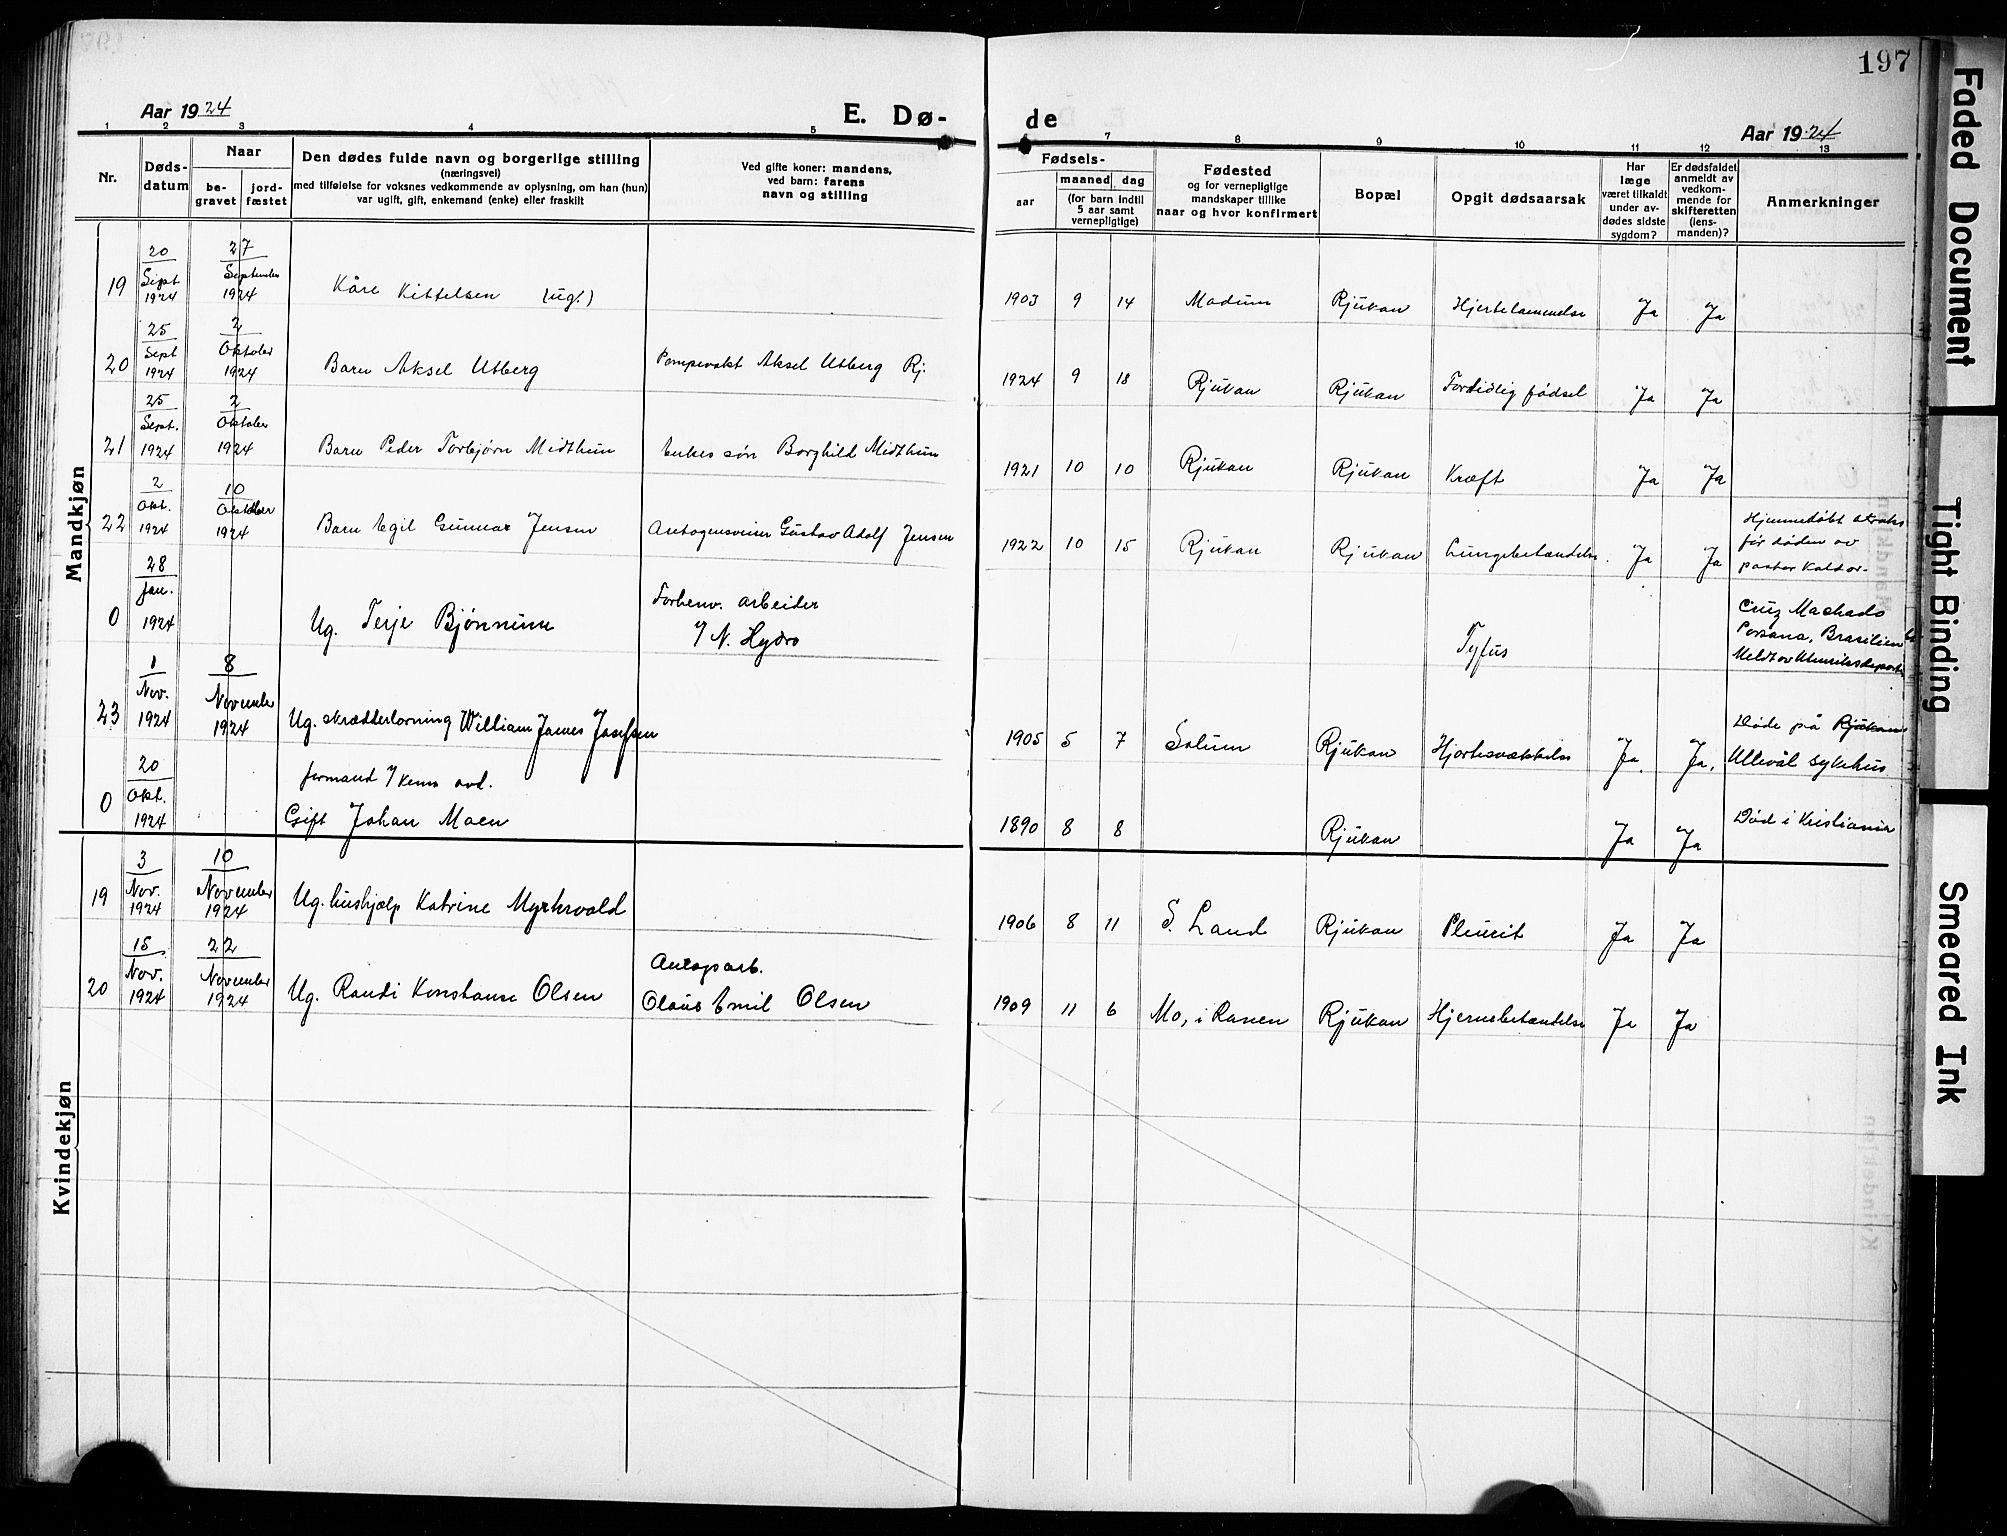 197
Aar 1924
E. Dø-
de
Aar 1924
1 2 3 4 5 6 7 8 9 10 11 12 13
Nr.
Døds-
datum
Naar
be-
gravet
jord-
fæstet
Den dødes fulde navn og borgerlige stilling
(næringsvei)
med tilføielse for voksnes vedkommende av oplysning, om han (hun)
var ugift, gift, enkemand (enke) eller fraskilt
Ved gifte koner: mandens,
ved barn: farens
navn og stilling
Fødsels-
aar
maaned dag
(for barn indtil
5 aar samt
vernepligtige)
Fødested
og for vernepligtige
mandskaper tillike
naar og hvor konfirmert
Bopæl
Opgit dødsaarsak
Har
læge
været tilkaldt
under av-
dødes sidste
sygdom?
Er dødsfaldet
anmeldt av
vedkom-
mende for
skifteretten
(lens-
manden)?
Anmerkninger
Mandkjøn
19 20 Sept 1924 27 September 1924 Kåre Kittelsen (ug.) 1903 9 14 Modum Rjukan Hjertelammelse Ja Ja
20 25 Sept 1924 2 Oktober 1924 Barn Aksel Utberg Pompevakt Aksel Utberg Rj. 1924 9 18 Rjukan Rjukan Fortidlig fødsel Ja Ja
21 25 Sept. 1924 2 Oktober 1924 Barn Peder Torbjørn Midthun Enkes søn Borghild Midthun 1921 10 10 Rjukan Rjukan Kræft Ja Ja
22 2 Okt. 1924 10 Oktober 1924 Barn Egil Gunnar Jensen Autogensveiser Gustav Adolf Jensen 1922 10 15 Rjukan Rjukan Lungebetændelse Ja Ja
Hjemmedøbt straks
før døden av
pastor
0 28 Jan. 1924 Ug. Terje Bjønnum
Forhenv. arbeider
v/ N. Hydro
Tyfus
Cruz Machado
Parana, Brasilien
Meldt av Utenriksdepart.
23 1 Nov. 1924 8 November 1924 Ug. skrædderlærning William James Josefsen 1905 5 7 Solum Rjukan Hjertesvækkelse Ja Ja.
Døde på Rjukan
Ullevål sykehus
0 20 Okt. 1924
formand v/ Kem. avd.
Gift Johan Moen 1890 8 8 Rjukan Ja Ja Død i Kristiania
Kvindekjøn
19 3 Nov. 1924 10 November 1924 Ug. hushjælp Katrine Myrhvold 1906 8 11 S. Land Rjukan Pleurit Ja Ja
20 15 Nov. 1924 22 November 1924 Ug. Randi Konstanse Olsen
Anlægsarb.
Olaus Emil Olsen 1909 11 6 Mo, i Ranen Rjukan Hjernebetændelse Ja Ja
Faded Document
Tight Binding
Smeared Ink